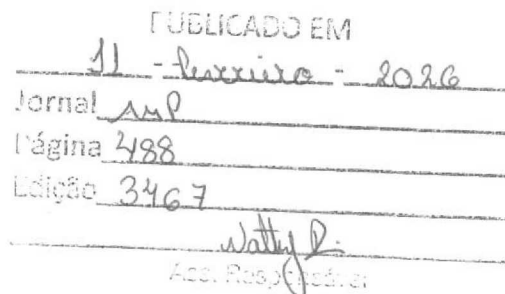 PUBLICADO EM
11 - fevereiro - 2026
Jornal AMP
Página 488
Edição 3467
Natty R.
Ass. Responsável